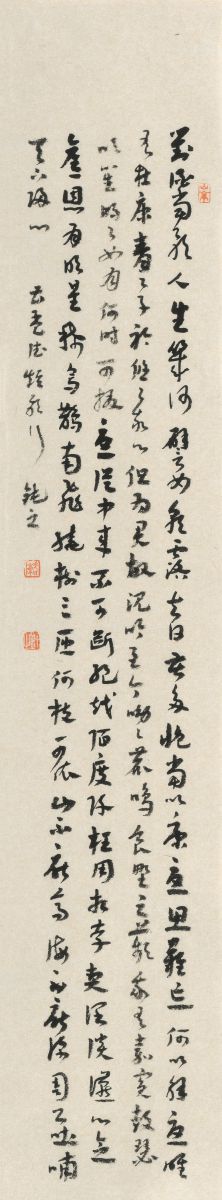 對酒當歌人生幾何譬如朝露去日苦多慨當以慷憂思難忘何以解憂唯
有杜康青青子衿悠悠我心但為君故沈吟至今呦呦鹿鳴食野之苹我有嘉賓鼓瑟
吹笙明明如月何時可掇憂從中來不可斷絕越陌度阡枉用相存契闊談讌心念
舊恩月明星稀烏鵲南飛繞樹三匝何枝可依山不厭高海不厭深周公吐哺
天下歸心 孟德短歌行